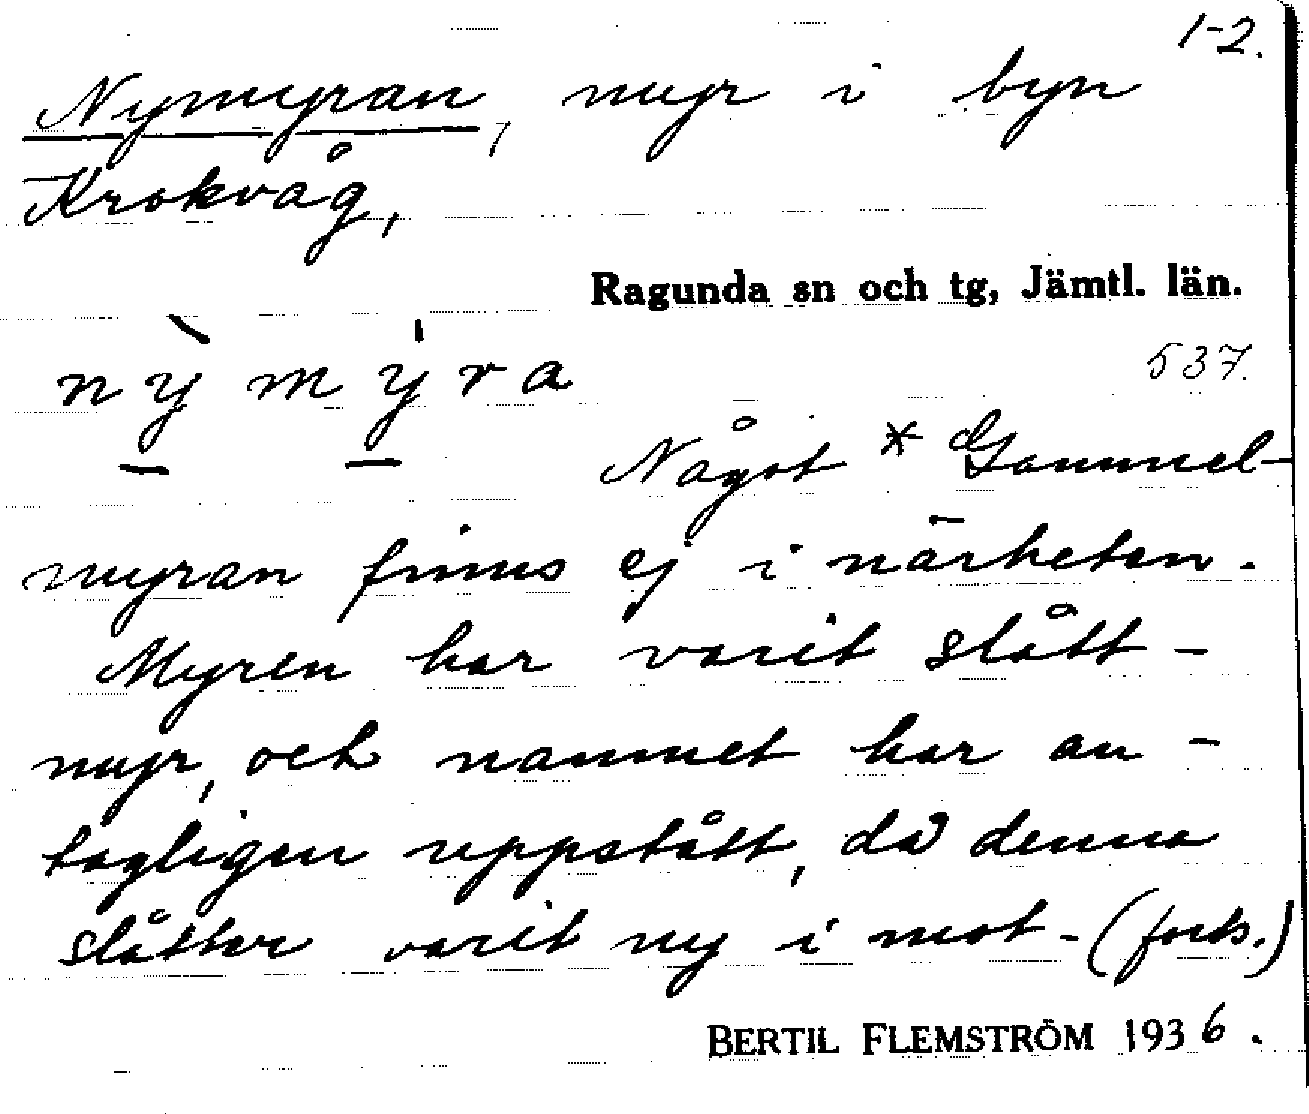 1-2.
Nymyran, myr i byn
Krokvåg,
Ragunda sn och tg, Jämtl. län.
nỳmýra
537.
Något * Gammel-
myran finns ej i närheten.
Myren har varit slått-
myr, och namnet har an-
tagligen uppstått, då denna
slåtter varit ny i mot- (forts.)
BERTIL FLEMSTRÖM 1936.